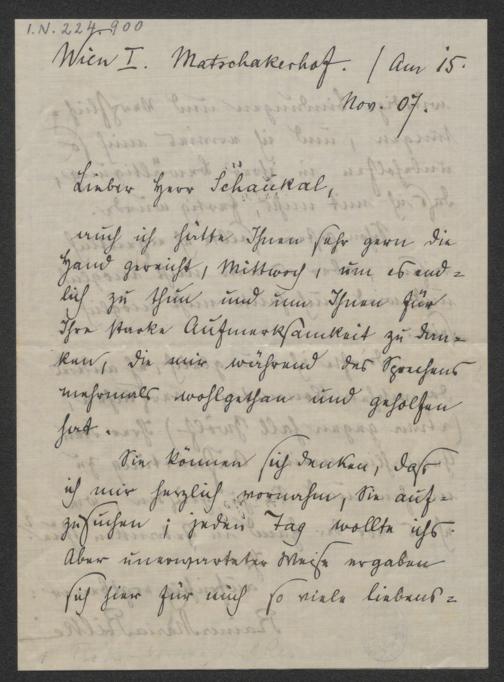 I.N. 224.900
Wien I. Matschakerhof. / Am 15.
Nov. 07.
Lieber Herr Schaukal,
auch ich hätte Ihnen sehr gern die
Hand gereicht, Mittwoch, um es end=
lich zu thun und um Ihnen für
Ihre starke Aufmerksamkeit zu dan=
ken, die mir während des Sprechens
mehrmals wohlgethan und geholfen
hat.
Sie können sich denken, dass
ich mir herzlich vornahm, Sie auf=
zusuchen; jeden Tag wollte ichs
Aber unerwarteter Weise ergaben
sich hier für mich so viele liebens=